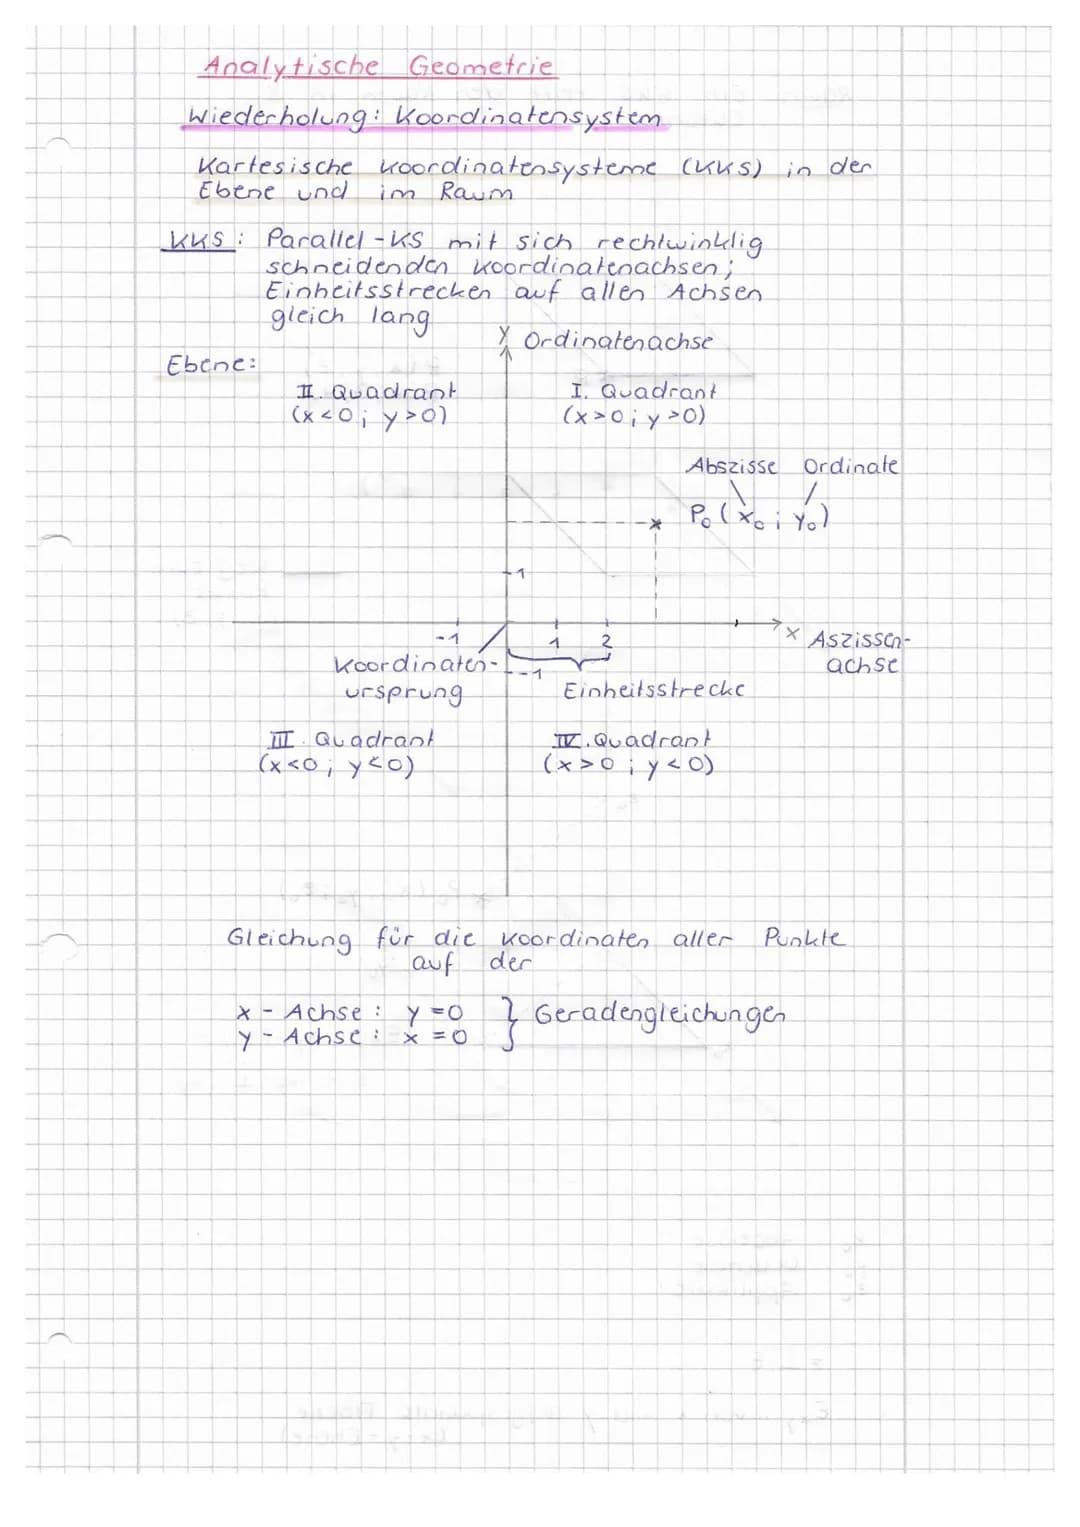 Analytische Geometrie
Wiederholung: Koordinatensystem
Kartesische Koordinatensysteme (KKS) in der
Ebene und im Raum
KKS: Parallel-KS mit sich rechtwinklig
schneidenden Koordinatenachsen;
Einheitsstrecken auf allen Achsen
gleich lang
y Ordinatenachse
Ebene:
II. Quadrant I. Quadrant
(x<0; y>0) (x>0; y>0)
Abszisse Ordinate
P₀(x₀; y₀)
1
-1 1 2 x Aszissen-
achse
Koordinaten- -1
ursprung Einheitsstrecke
III. Quadrant IV. Quadrant
(x<0; y<0) (x>0; y<0)
Gleichung für die Koordinaten aller Punkte
auf der
x-Achse: y=0 } Geradengleichungen
y-Achse: x=0